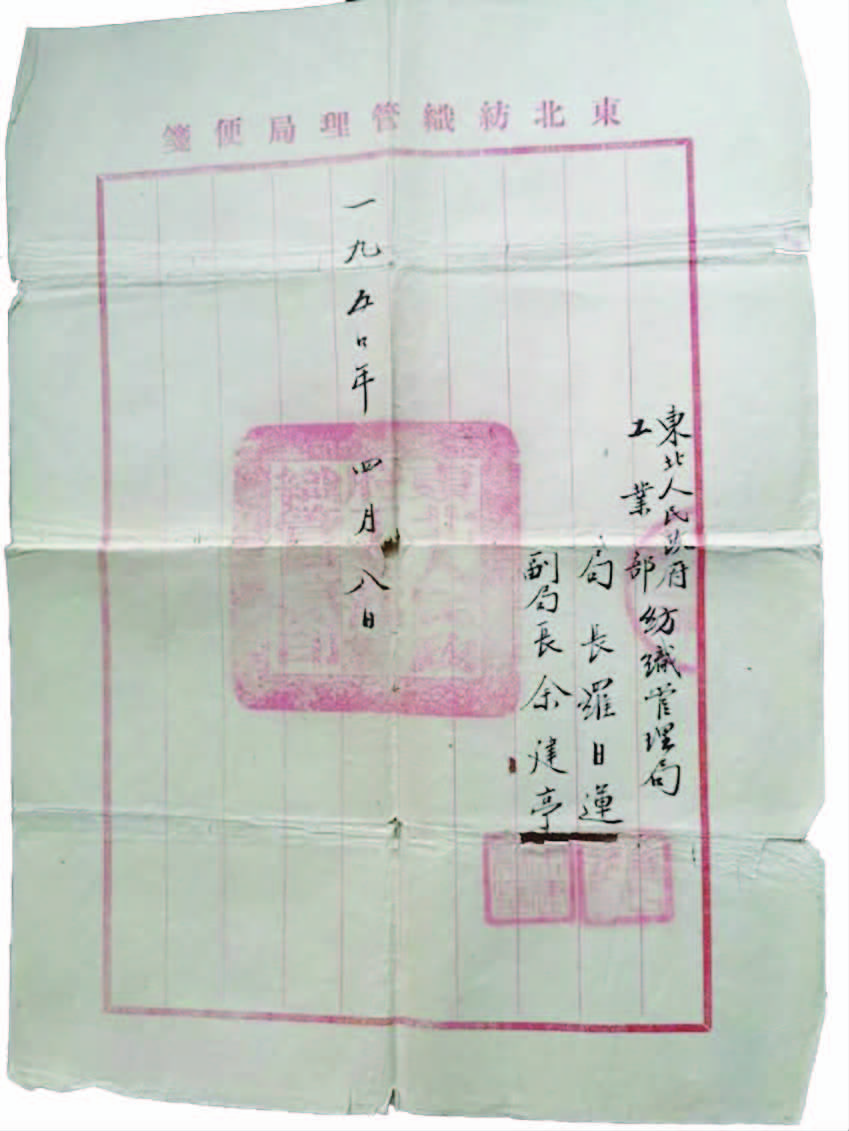 東北紡織管理局便箋
東北人民政府
工業部紡織管理局
局長羅日運
副局長余建亭
一九五〇年四月八日